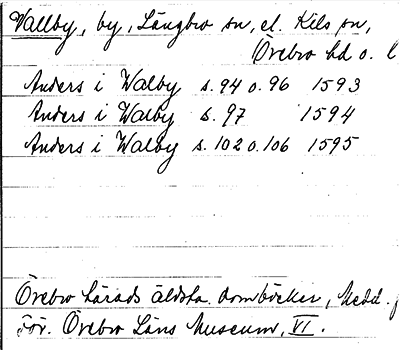 Vallby, by, Längbro sn, el. Kils sn,
Örebro hd o. l
Anders i Walby s. 94 o. 96 1593
Anders i Walby s. 97 1594
Anders i Walby s. 102 o. 106 1595
Örebro härads äldsta domböcker, Medd. f
för. Örebro Läns Museum, VI.